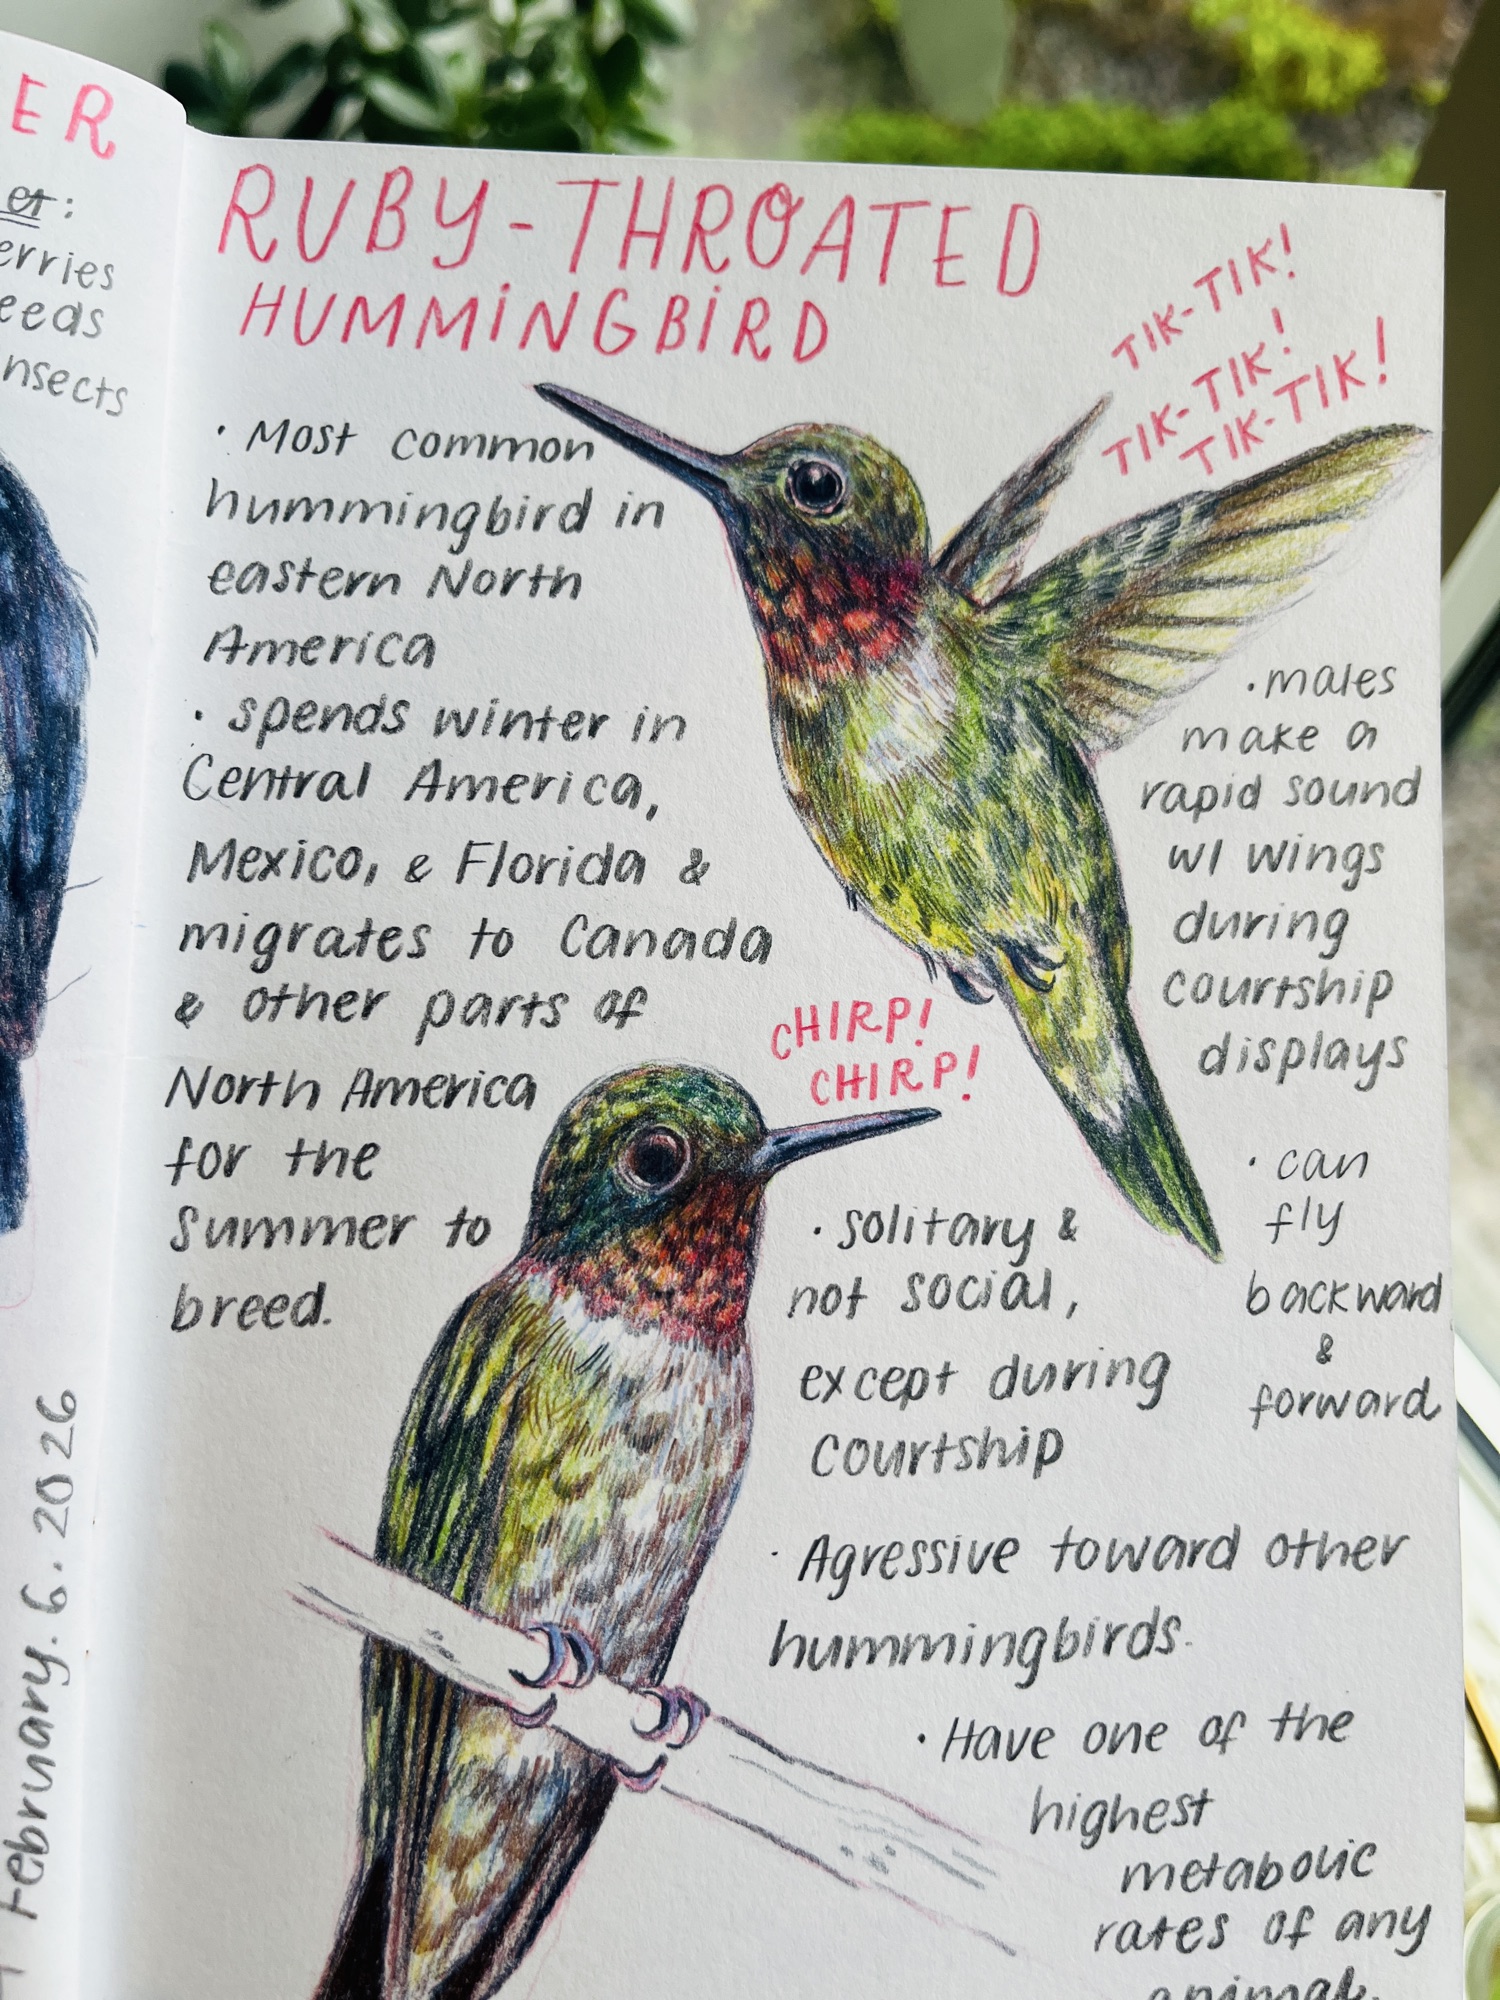 ER
et:
erries
eeds
nsects
February. 6. 2026
RUBY-THROATED
HUMMINGBIRD
TIK-TIK!
TIK-TIK!
TIK-TIK!
· Most common
hummingbird in
eastern North
America
· spends winter in
Central America,
Mexico, & Florida &
migrates to Canada
& other parts of
North America
for the
summer to
breed.
· males
make a
rapid sound
w/ wings
during
courtship
displays
CHIRP!
CHIRP!
· can
fly
backward
&
forward
· solitary &
not social,
except during
courtship
· Agressive toward other
hummingbirds.
· Have one of the
highest
metabolic
rates of any
animal.